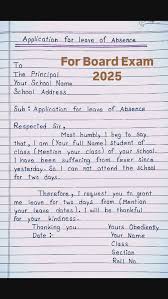 Application for leave of Absence
For Board Exam
2025
To
The Principal
Your School Name
School Address
Sub : Application for leave of Absence
Respected Sir,
Most humbly I beg to say
that, I am (Your Full Name) Student of
class (Mention your class) of your school.
I have been suffering from fever since
yesterday. So I can not attend the school
for two days.
Therefore, I request you to grant
me leave for two days from (Mention
your leave dates). I will be thankful
for your kindness.
Thanking you Yours Obediently
Date :- Your Name
Class
Section
Roll No.